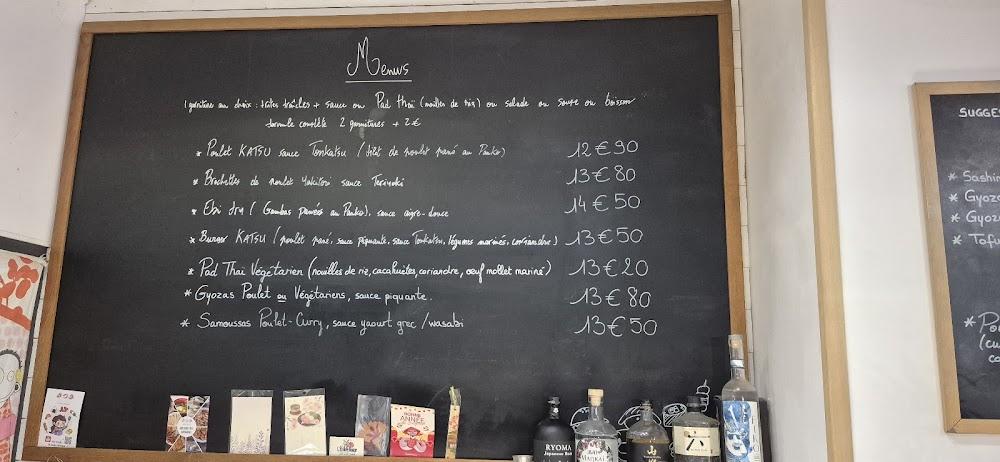 Menus
1 garniture au choix : frites fraîches + sauce ou Pad thaï (nouilles de riz) ou salade ou soupe ou boisson
formule complète 2 garnitures + 2 €
* Poulet KATSU sauce Tonkatsu (filet de poulet pané au Panko) 12 € 90
* Brochettes de poulet Yakitori sauce Teriyaki 13 € 80
* Ebi fry (Gambas panées au Panko), sauce aigre-douce 14 € 50
* Burger KATSU (poulet pané, sauce piquante, sauce Tonkatsu, légumes marinés, coriandre) 13 € 50
* Pad Thaï Végétarien (nouilles de riz, cacahuètes, coriandre, oeuf mollet mariné) 13 € 20
* Gyozas Poulet ou Végétariens, sauce piquante. 13 € 80
* Samoussas Poulet-Curry, sauce yaourt grec / wasabi 13 € 50
SUGGES
* Sashim
* Gyoza
* Gyoza
* Tofu
* Po
(cu
co
BONNE
ANNÉE
RYOMA